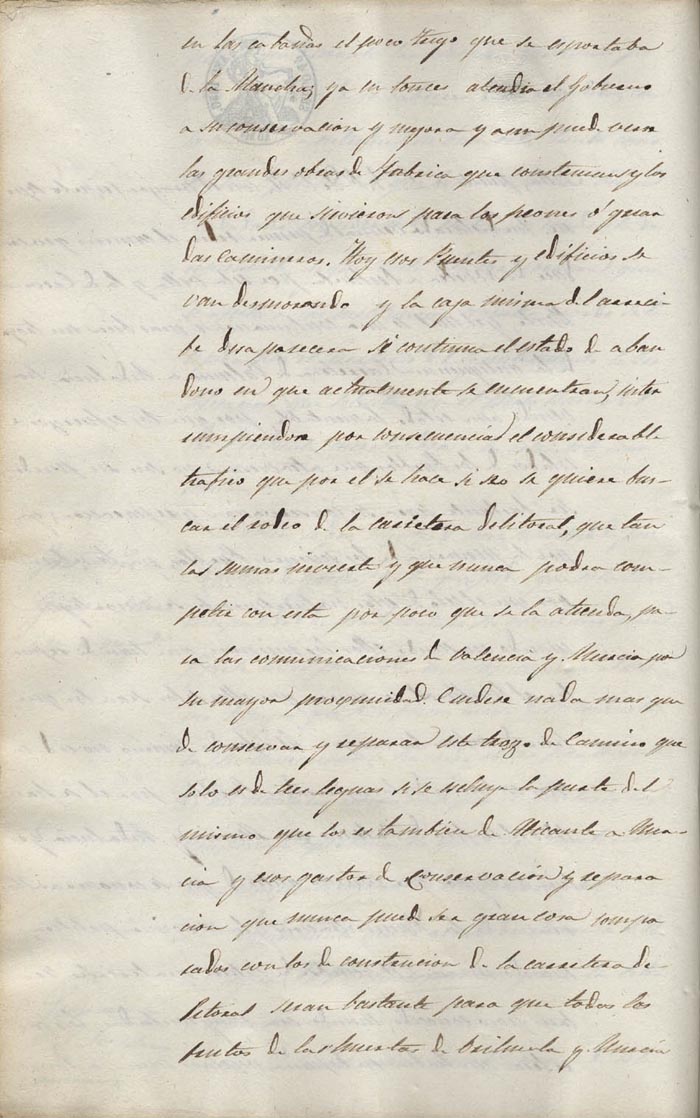 en las cabañas el poco trigo que se esportaba
de la Mancha; ya entonces atendia el Gobierno
a su conservacion y mejora y aun puede verse
las grandes obras de fabrica que construimos y los
edificios que sirvieron para los peones ó guar
das camineros. Hoy esos Puentes y edificios se
van desmorando y la caja misma del arreci-
fe desaparecera si continua el estado de aban
dono en que actualmente se encuentran, inter
rumpiendose por consecuencia el considerable
trafico que por el se hace si no se quiere bus-
car el rodeo de la carretera del litoral, que tan
tas sumas invierte y que nunca podra com-
petir con esta por poco que se la atienda, pa
ra las comunicaciones de Valencia y Murcia por
su mayor proximidad. Cuidese nada mas que
de conservar y reparar este trozo de Camino que
solo es de tres leguas si se escluye la parte del
mismo que los es tambien de Alicante a Mur-
cia y esos gastos de conservacion y repara
cion que nunca puede ser gran cosa compa
rados con los de construcion de la carretera de
litoral seran bastante para que todos los
frutos de las huertas de Orihuela y Murcia